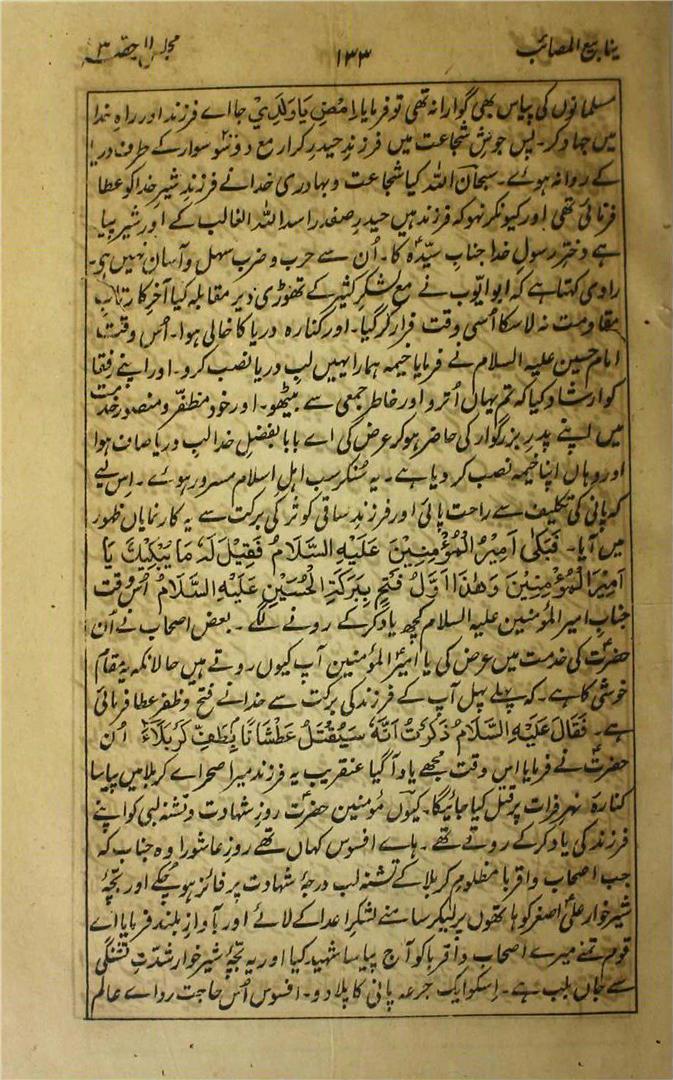 ینابیع المصائب
۱۳۳
مجلس ۱۱ حصہ ۳
مسلمانوں کی پیاس بھی گوارا نہ تھی تو فرمایا اِمْضِ یَا وَلَدِیْ جا اے فرزند اور راہِ خدا
میں جہاد کر۔ پس جوشِ شجاعت میں فرزندِ حیدرِ کرار مع دو نسو سوار کے طرف دریا
کے روانہ ہوئے۔ سبحان اللہ کیا شجاعت و بہادری خدا نے فرزندِ شیرِ خدا کو عطا
فرمائی تھی اور کیونکر نہو کہ فرزند ہیں حیدرِ صفدر اسد اللہ الغالب کے اور شیر پیا
ہے دخترِ رسولِ خدا جنابِ سیّدہؑ کا۔ اُن سے حرب و ضرب سہل و آسان نہیں ہی۔
راوی کہتا ہے کہ ابو ایّوب نے مع لشکرِ کثیر کے تھوڑی دیر مقابلہ کیا آخرِ کار تابِ
مقاومت نہ لا سکا اُسی وقت فرار کر گیا۔ اور کنارہ دریا کا خالی ہوا۔ اُس وقت
امام حسین علیہ السلام نے فرمایا خیمہ ہمارا یہیں لبِ دریا نصب کرو۔ اور اپنے رفقا
کو ارشاد کیا کہ تم یہاں اُترو اور خاطر جمعی سے بیٹھو۔ اور خود مظفّر و منصور خدمت
میں اپنے پدرِ بزرگوار کی حاضر ہو کر عرض کی اے بابا بفضلِ خدا لبِ دریا صاف ہوا
اور وہاں اپنا خیمہ نصب کر دیا ہے۔ یہ سُنکر سب اہلِ اسلام مسرور ہوئے۔ اِس لیے
کہ پانی کی تکلیف سے راحت پائی اور فرزندِ ساقیِ کوثر کی برکت سے یہ کارِ نمایاں ظہور
میں آیا۔ فَبَکٰی اَمِیْرُ الْمُؤْمِنِیْنَ عَلَیْہِ السَّلَامُ فَقِیْلَ لَہٗ مَا یُبْکِیْکَ یَا
اَمِیْرَ الْمُؤْمِنِیْنَ وَھٰذَا اَوَّلُ فَتْحٍ بِبَرَکَۃِ الْحُسَیْنِ عَلَیْہِ السَّلَامُ اُس وقت
جناب امیر المؤمنین علیہ السلام کچھ یاد کر کے رونے لگے۔ بعض اصحاب نے اُن
حضرتؑ کی خدمت میں عرض کی یا امیر المؤمنین آپ کیوں روتے ہیں حالانکہ یہ مقام
خوشی کا ہے۔ کہ پہلے پہل آپ کے فرزند کی برکت سے خدا نے فتح و ظفر عطا فرمائی
ہے۔ فَقَالَ عَلَیْہِ السَّلَامُ ذَکَرْتُ اَنَّہٗ سَیُقْتَلُ عَطْشَانًا بِطَفِّ کَرْبَلَاءَ اُن
حضرتؑ نے فرمایا اس وقت مجھے یاد آ گیا عنقریب یہ فرزند میرا صحراے کربلا میں پیاسا
کنارہ نہرِ فرات پر قتل کیا جائیگا۔ کیوں مؤمنین حضرتؑ روزِ شہادت و تشنہ لبی کو اپنے
فرزند کی یاد کر کے روتے تھے۔ ہاے افسوس کہاں تھے روزِ عاشورا وہ جناب کہ
جب اصحاب و اقربا مظلومِ کربلا کے تشنہ لب درجۂ شہادت پر فائز ہو چکے اور بچّۂ
شیرخوار علی اصغر کو ہاتھوں پر لیکر سامنے لشکرِ اعدا کے لائے اور آوازِ بلند فرمایا اے
قوم تمنے میرے اصحاب و اقربا کو آج پیاسا شہید کیا اور یہ بچّۂ شیرخوار شدّتِ تشنگی
سے جاں بلب ہے۔ اِسکو ایک جرعہ پانی کا پلا دو۔ افسوس اُس حاجت روا ے عالم